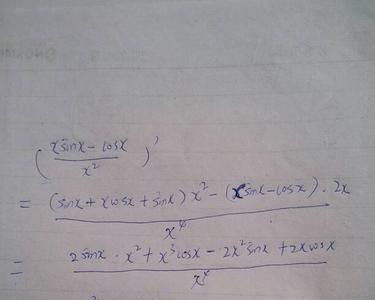 (xsinx - cosx / x²)'
= (sinx + xcosx + sinx) x² - (xsinx - cosx) · 2x / x⁴
= 2sinx · x² + x³cosx - 2x²sinx + 2xcosx / x⁴